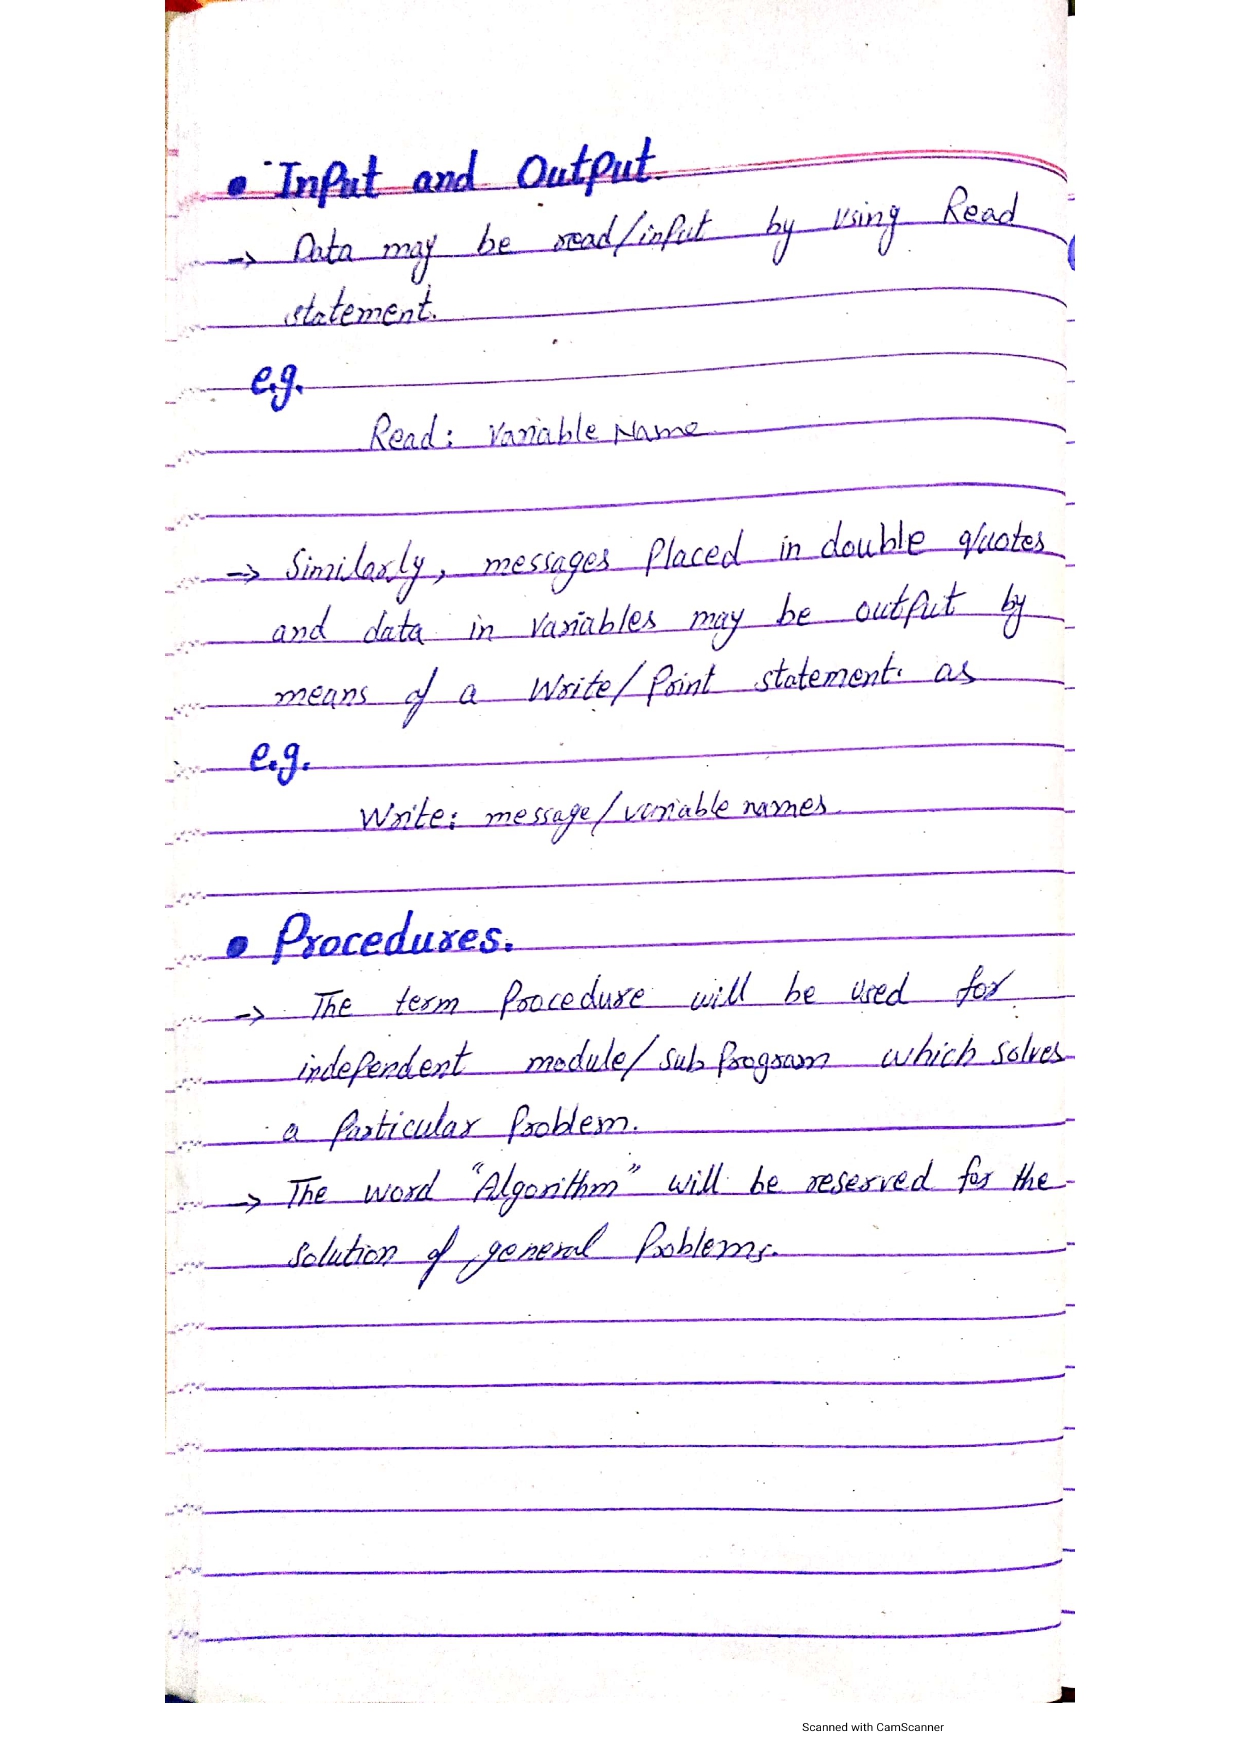 • Input and Output.
→ Data may be read/input by using Read
statement.
e.g.
Read: Variable Name
→ Similarly, messages Placed in double quotes
and data in variables may be output by
means of a Write/Print statement. as
e.g.
Write: message/variable names
• Procedures.
→ The term Procedure will be used for
independent module/sub Program which solves
a Particular Problem.
→ The word "Algorithm" will be reserved for the
solution of general Problems.
Scanned with CamScanner